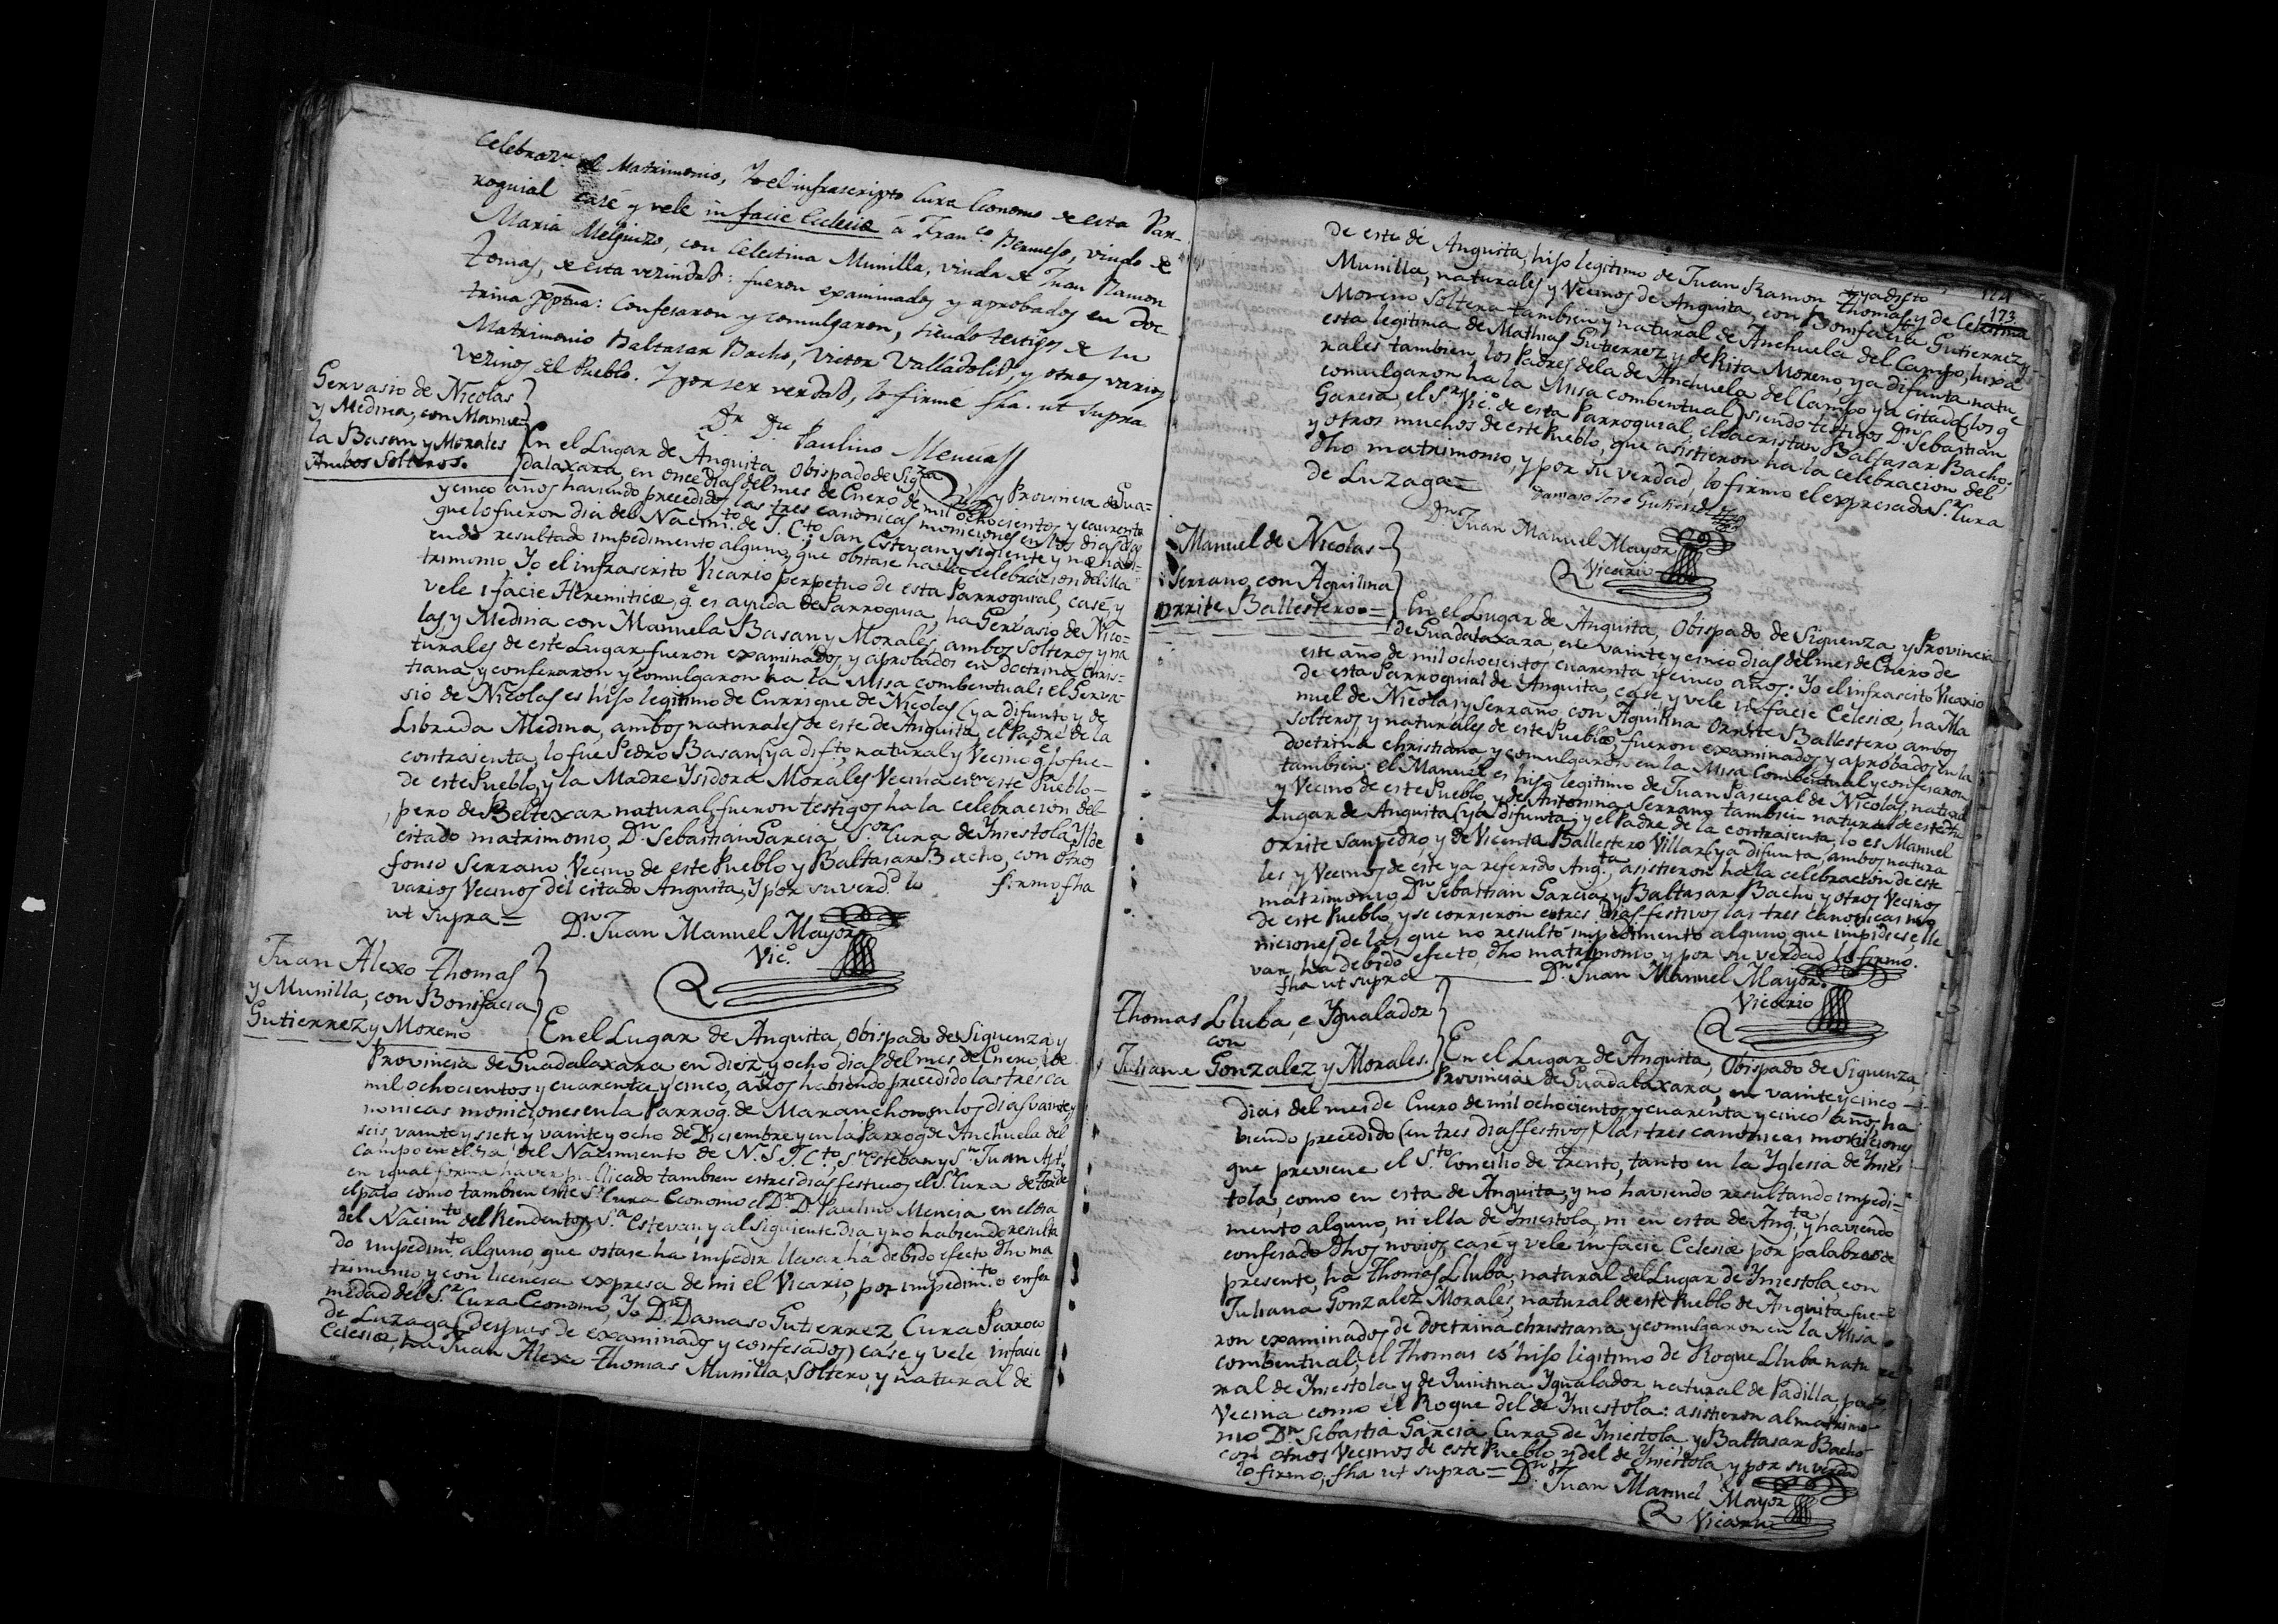 Celebrazn. el Matrimonio, Yo el infrascripto Cura Economo de esta Par-
roquial casé y velé in facie Eclesiæ á Franco. Bermejo, viudo de
Maria Melguizo, con Celestina Munilla, viuda de Juan Ramon
Tomas, de esta vezindad: fueron examinados y aprobados en Doc
trina Xptna: Confesaron y comulgaron, siendo testigos de su
Matrimonio Baltasar Bacho, Victor Valladolid, y otros varios
vezinos del Pueblo. Y por ser verdad, lo firmé fha. ut supra
Dr. Dn. Paulino Mencia
Gervasio de Nicolas
y Medina, con Manue-
la Basan y Morales
Ambos Solteros.
En el Lugar de Anguita Obispado de Sigza y Provincia de Gua-
dalaxara, en once dias del mes de Enero de mil ochocientos y cuarenta
y cinco años haviendo precedido las tres canonicas moniciones en los dias
que lo fueron dia del Nacimto. de J. Cto. San Estevan y sigiente y no havi-
endo resultado impedimento alguno, que obstase ha la celebracion del Ma
trimonio, Yo el infrascrito Vicario perpetuo de esta Parroquial, casé, y
vele i facie Heremiticæ, q. es ayuda de Parroquia, ha Gervasio de Nico=
las, y Medina con Manuela Basan, y Morales, ambos Solteros y na
turales de este Lugar, fueron examinados, y aprobados en doctrina Chris-
tiana y confesaron y comulgaron ha la Misa combentual: el Gerva-
sio de Nicolas es hijo legitimo de Enrrique de Nicolas (ya difunto y de
Librada Medina, ambos naturales de este de Anguita, el Padre de la
contraienta, lo fue Pedro Basan (ya difto, natural y Vecino q. lo fue-
de este Pueblo, y la Madre Ysidora Morales Vecina en este Pueblo-
pero de Beltexar natural; fueron testigos ha la celebracion del
citado matrimonio, Dn. Sebastian Garcia, Sor. Cura de Yniestola Ylde
fonso Serrano Vecino de este Pueblo y Baltasar Bacho, con otros
varios Vecinos del citado Anguita, y por su verdd. lo firmo fha
ut supra= Dn. Juan Manuel Mayor
Vico.
Juan Alexo Thomas
y Munilla, con Bonifacia
Gutierrez y Moreno
En el Lugar de Anguita, Obispado de Siguenza y
Provincia de Guadalaxara en diez y ocho dias del mes de Enero, de
mil ochocientos y cuarenta y cinco, años habiendo precedido las tres ca
nonicas moniciones en la Parroq. de Maranchon, en los dias vainte y
seis, vainte y siete y vainte y ocho de Diciembre y en la Parroq de Anchuela del
Campo en el dia del Nacimiento de N. S. J. Cto, Sn. Esteban y Sn. Juan Apl. y
en igual forma haver publicado tambien en tres dias festivos el Sr. Cura de
como tambien este Sr. Cura Economo el Dr. D. Paulino Mencia en el dia
del Nacimto. del Rendentor, Sn. Estevan, y al siguiente dia y no habiendo resulta
do impedimto. alguno, que ostase ha impedir llevar ha debido efecto dho ma
trimonio, y con licencia expresa de mi el Vicario, por impedimto. o enfer
medad del Sr. Cura Economo, Yo Dn. Damaso Gutierrez Cura Parroco
de Luzaga (despues de examinados y confesados) case y vele infacie
Eclesiæ, ha Juan Alexo Thomas Munilla, Soltero, y natural de
173
De este de Anguita, hijo legitimo de Juan Ramon Thomas ya difto y de Celestina
Munilla, naturales y Vecinos de Anguita, con Bonifacia Gutierrez y
Moreno Soltera tambien y natural de Anchuela del Campo, hixa
esta legitima de Mathias Gutierrez, y de Rita Moreno, ya difunta natu
rales tambien los Padres de la de Anchuela del Campo ya citado (los q.
comulgaron ha la Misa combentual) siendo testigos Dn. Sebastian
Garcia, el Sr. Vico. de esta Parroquial, el Sacristan Baltasar Bacho,
y otros muchos de este Pueblo, que asistieron ha la celebracion del
dho matrimonio, y por su verdad, lo firmo el expresado Sr. Cura
de Luzaga= Damaso Jose Gutierrez
Dn. Juan Manuel Mayor
Vicario
Manuel de Nicolas
Serrano, con Aquilina
Orrite Ballestero.=
En el Lugar de Anguita, Obispado de Siguenza y Provincia
de Guadalaxara, en vainte y cinco dias del mes de Enero de
este año de mil ochocientos cuarenta y cinco años: Yo el infrascrito Vicario
de esta Parroquial de Anguita, case, y vele in facie Celesiæ, ha Ma
nuel de Nicolas y Serrano con Aquilina Orrite Ballestero, ambos
Solteros y naturales de este Pueblo, fueron examinados y aprobados en la
doctrina christiana, y comulgaron en la Misa Combentual y confesaron
tambien: el Manuel es hijo legitimo de Juan Pascual de Nicolas, natural
y Vecino de este Pueblo, y de Antonina Serrano tambien natural de este
Lugar de Anguita (ya difunta; y el Padre de la contraienta, lo es Manuel
Orrite Sanpedro, y de Vicenta Ballestero Villar (ya difunta, ambos natura
les, y Vecinos de este ya referido Angta. asistieron ha la celebracion de este
matrimonio Dn. Sebastian Garcia y Baltasar Bacho, y otros Vecinos
de este Pueblo, y se corrieron en tres dias festivos las tres canonicas mo
niciones de las que no resultó impedimento alguno que impidiese, lle
var ha debido efecto, dho matrimonio, y por su verdad lo firmo.
fha ut supra Dn. Juan Manuel Mayor.
Vicario
Thomas Lluba, e Ygualador
con
Juliana Gonzalez y Morales.
En el Lugar de Anguita, Obispado de Siguenza,
Provincia de Guadalaxara, en vainte y cinco
dias del mes de Enero de mil ochocientos y cuarenta y cinco años, ha
biendo precedido (en tres dias festivos) las tres canonicas moniciones
que previene el Sto. Concilio de Trento, tanto en la Yglesia de Ynies
tola, como en esta de Anguita, y no haviendo resultando impedi=
mento alguno, ni el la de Yniestola, ni en esta de Angta. y haviendo
confesado dhos novios, casé y vele in facie Celesiæ por palabras de
presente, ha Thomas Lluba, natural del Lugar de Yniestola, con
Juliana Gonzalez Morales, natural de este Pueblo de Anguita, fue-
ron examinados de doctrina christiana y comulgaron en la Misa
combentual, el Thomas es hijo legitimo de Roque Lluba natu
ral de Yniestola, y de Quintina Ygualador, natural de Padilla, pero
Vecina como el Roque del de Yniestola: asistieron al matrimo-
nio Dn. Sebastia Garcia Cura de Yniestola y Baltasar Bacho
con otros Vecinos de este Pueblo y del de Yniestola, y por su verdad
lo firmo, fha ut supra= Dn. Juan Manuel Mayor
Vicario